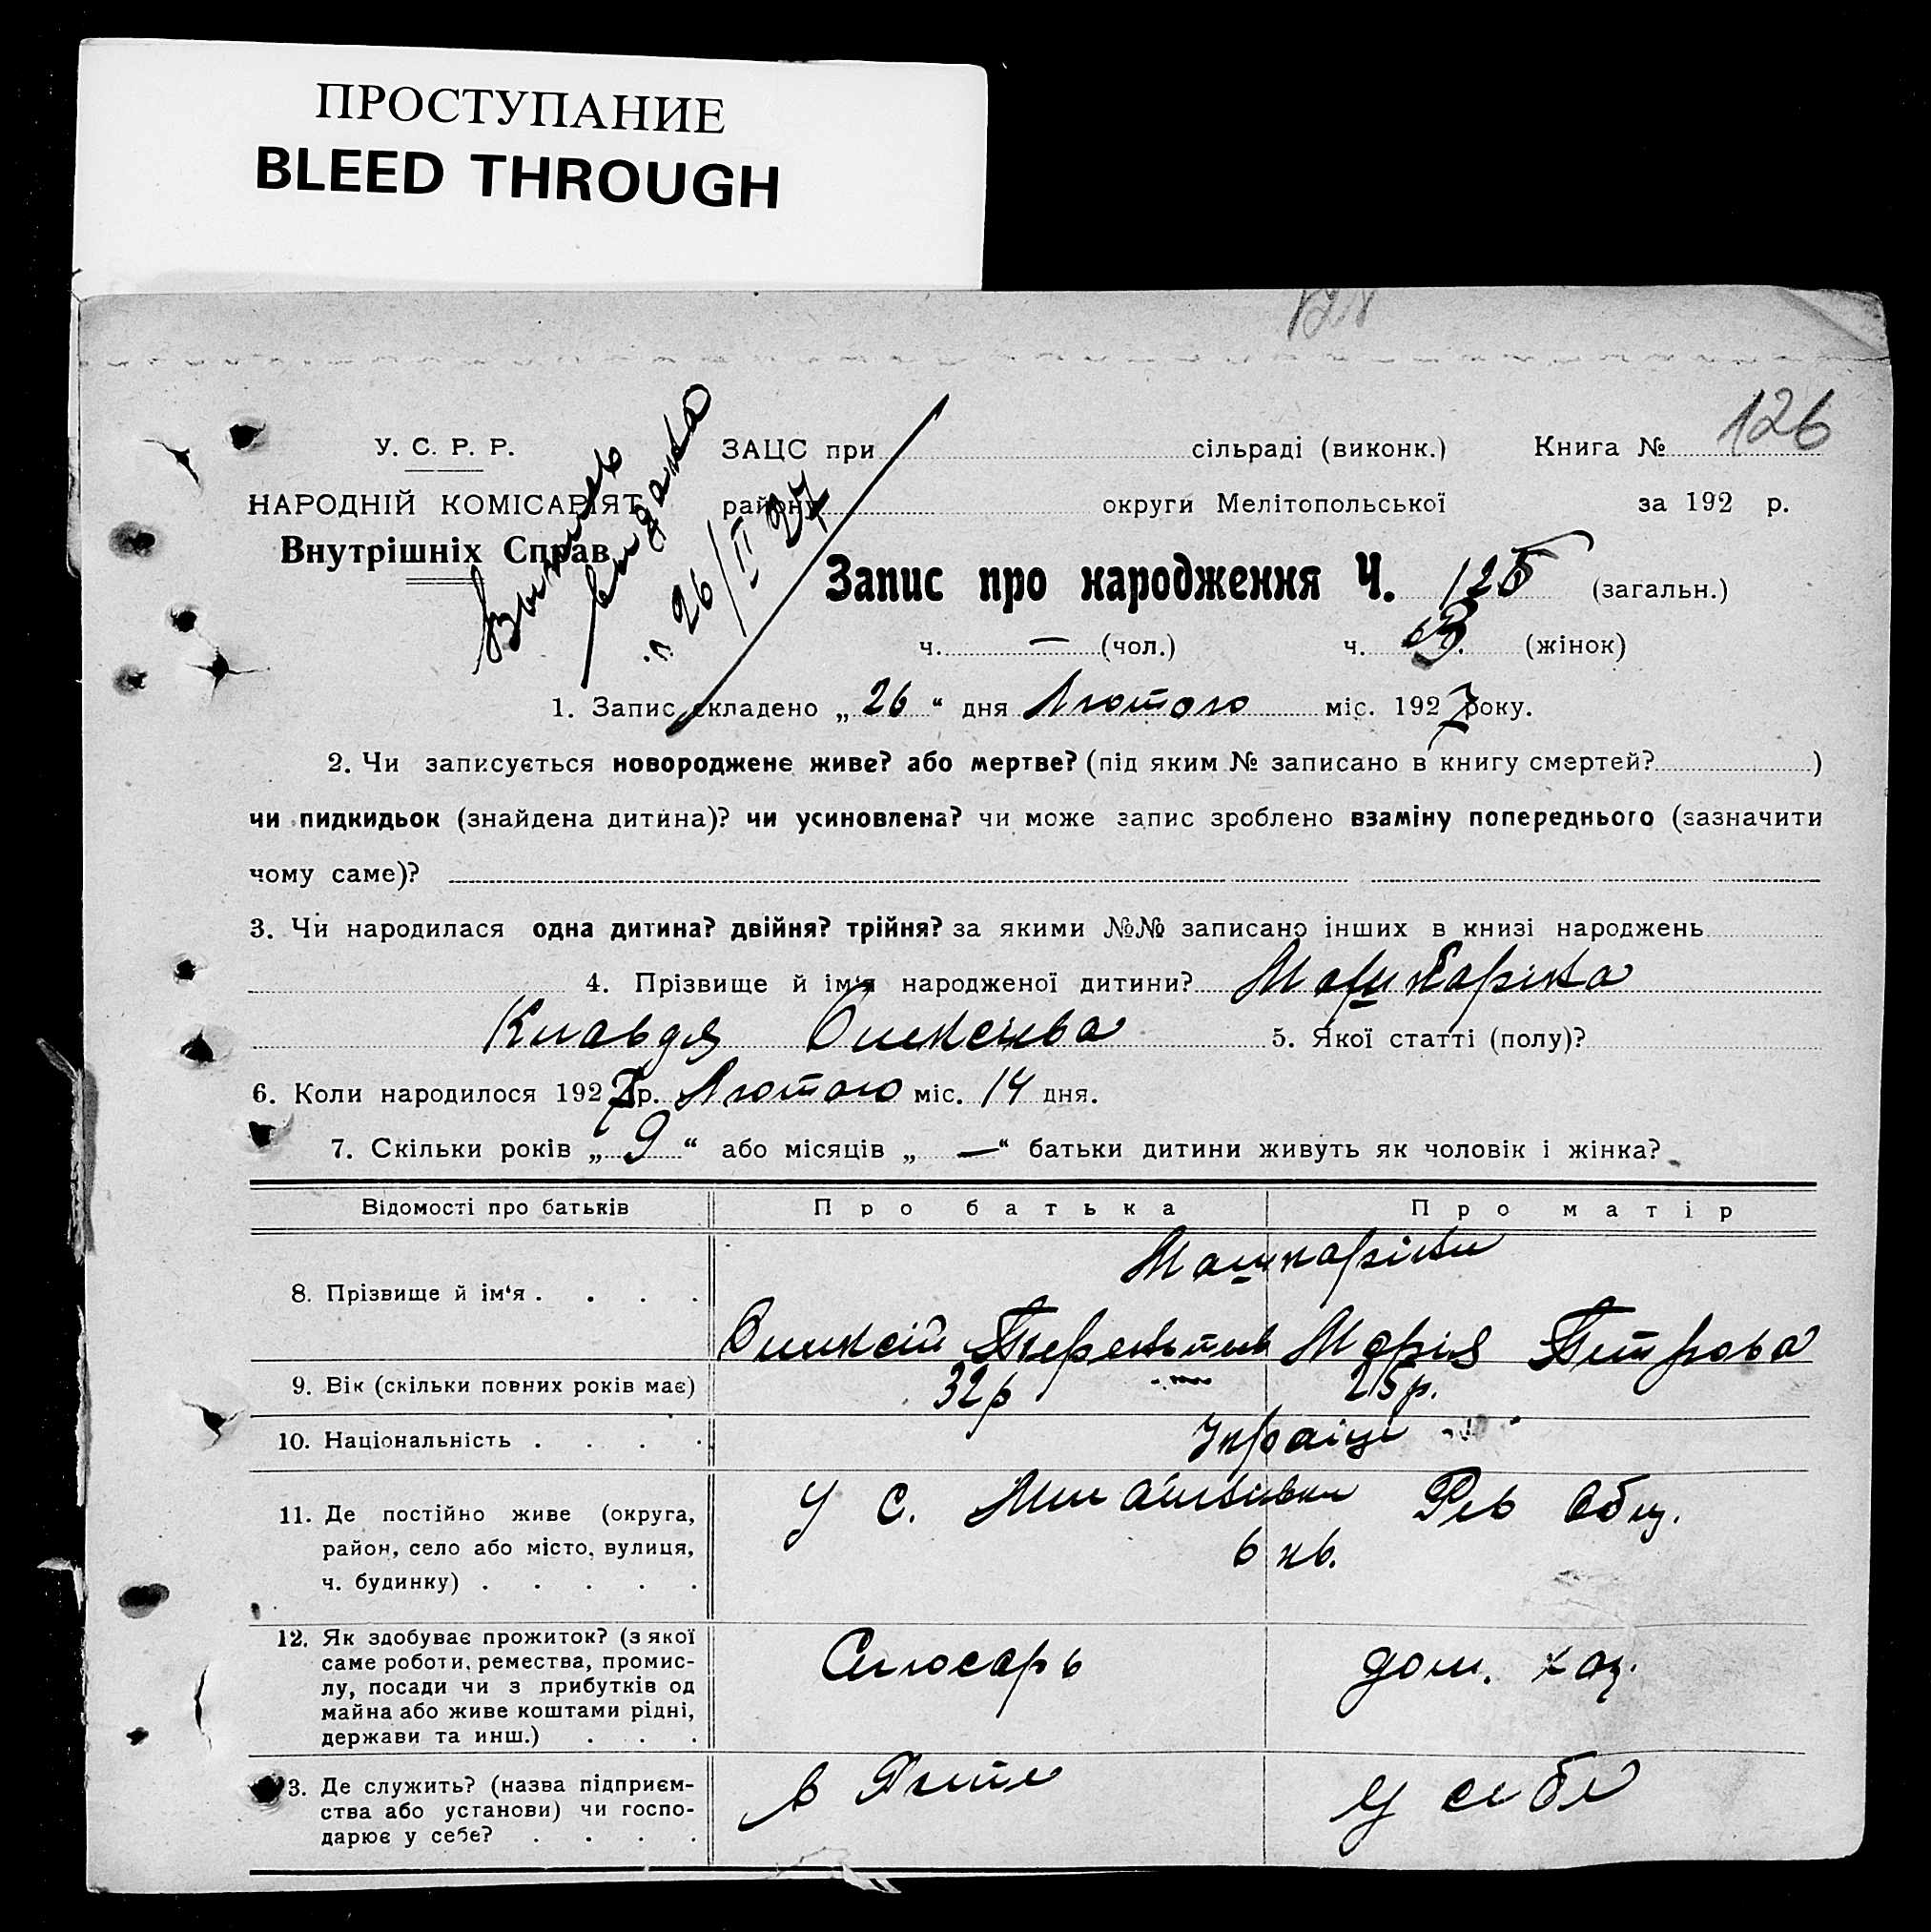 ПРОСТУПАНИЕ
BLEED THROUGH
126
У. С. Р. Р.
НАРОДНІЙ КОМІСАРІЯТ
Внутрішніх Справ
26/II 27
ЗАЦС при сільраді (виконк.) Книга №
району округи Мелітопольської за 192 р.
Запис про народження Ч. 125 (загальн.)
ч. — (чол.) ч. 63. (жінок)
1. Запис складено „ 26 “ дня Лютого міс. 1927 року.
2. Чи записується новороджене живе? або мертве? (під яким № записано в книгу смертей? )
чи пидкидьок (знайдена дитина)? чи усиновлена? чи може запис зроблено взаміну попереднього (зазначити
чому саме)?
3. Чи народилася одна дитина? двійня? трійня? за якими №№ записано інших в книзі народжень
4. Прізвище й ім‘я народженої дитини? Машкаріна
Клавдя Олексієва 5. Якої статті (полу)?
6. Коли народилося 1927 р. Лютого міс. 14 дня.
7. Скільки років „ 9 “ або місяців „ — “ батьки дитини живуть як чоловік і жінка?
Відомості про батьків Про батька Про матір
Машкаріни
8. Прізвище й ім‘я . . . .
Олексій Терентьев Марія Петрова
9. Вік (скільки повних років має) 32р 25р.
10. Національність . . . . Україці
11. Де постійно живе (округа, У С. Рев Общ.
район, село або місто, вулиця, 6 кв.
ч. будинку) . . . . .
12. Як здобуває прожиток? (з якої
саме роботи, ремества, промис- Слюсарь дом. хаз.
лу, посади чи з прибутків од
майна або живе коштами рідні,
держави та инш.) . . .
13. Де служить? (назва підприєм- в у себе
ства або установи) чи госпо-
дарює у себе? . . . .